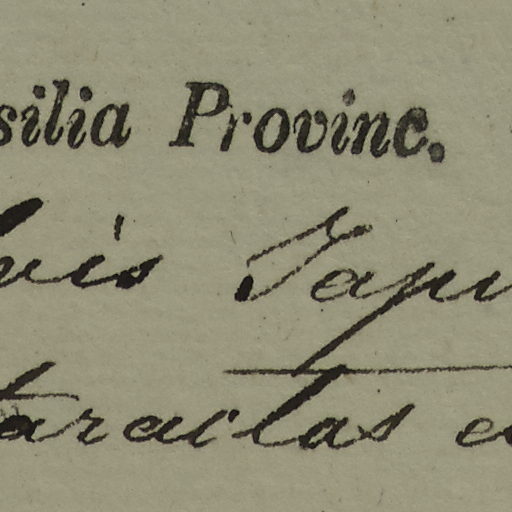 silia Provinc.
uis Japu
taractas e